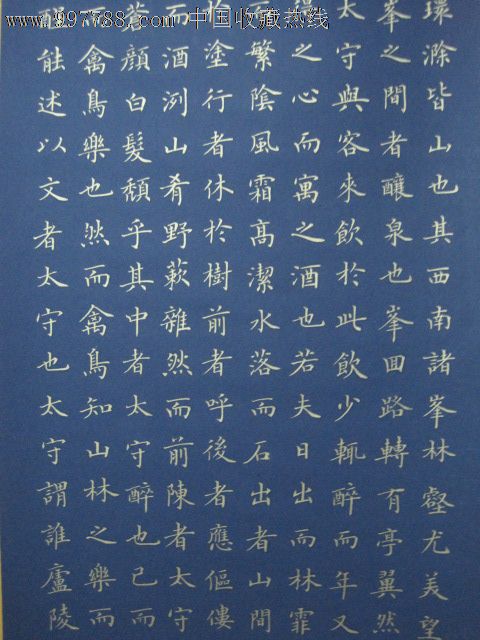 www.997788.com 中国收藏热线
環滁皆山也其西南諸峯林壑尤美望
峯之間者釀泉也峯回路轉有亭翼然
太守與客來飲於此飲少輒醉而年又
得之心而寓之酒也若夫日出而林霏
而繁陰風霜髙潔水落而石出者山間
於塗行者休於樹前者呼後者應傴僂
而酒洌山肴野蔌雜然而前陳者太守
蒼顏白髮頹乎其中者太守醉也已而
而禽鳥樂也然而禽鳥知山林之樂而
醒能述以文者太守也太守謂誰廬陵